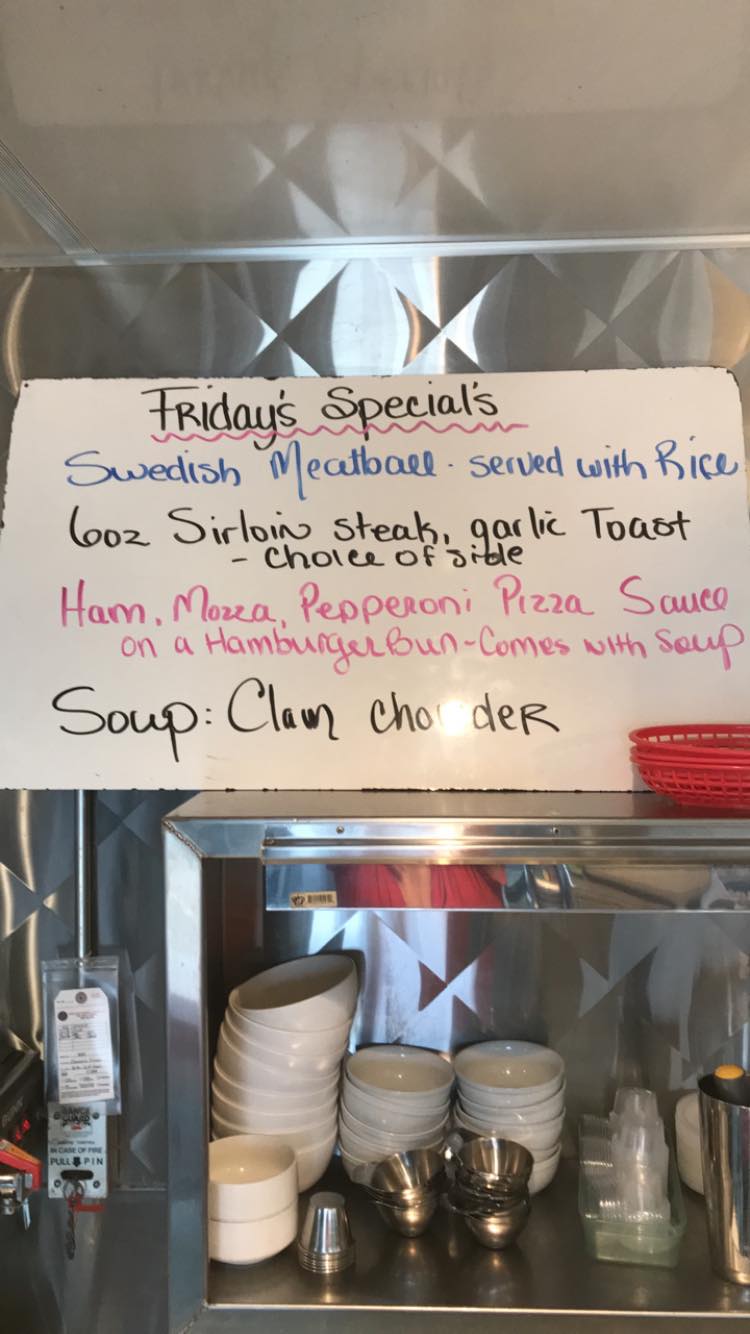 FRiday's Special's
Swedish Meatball - served with Rice
6oz Sirloin steak, garlic Toast
- Choice of side
Ham, Mozza, Pepperoni Pizza Sauce
on a Hamburger Bun - Comes with Soup
Soup: Clam chowdeR
IN CASE OF FIRE
PULL PIN